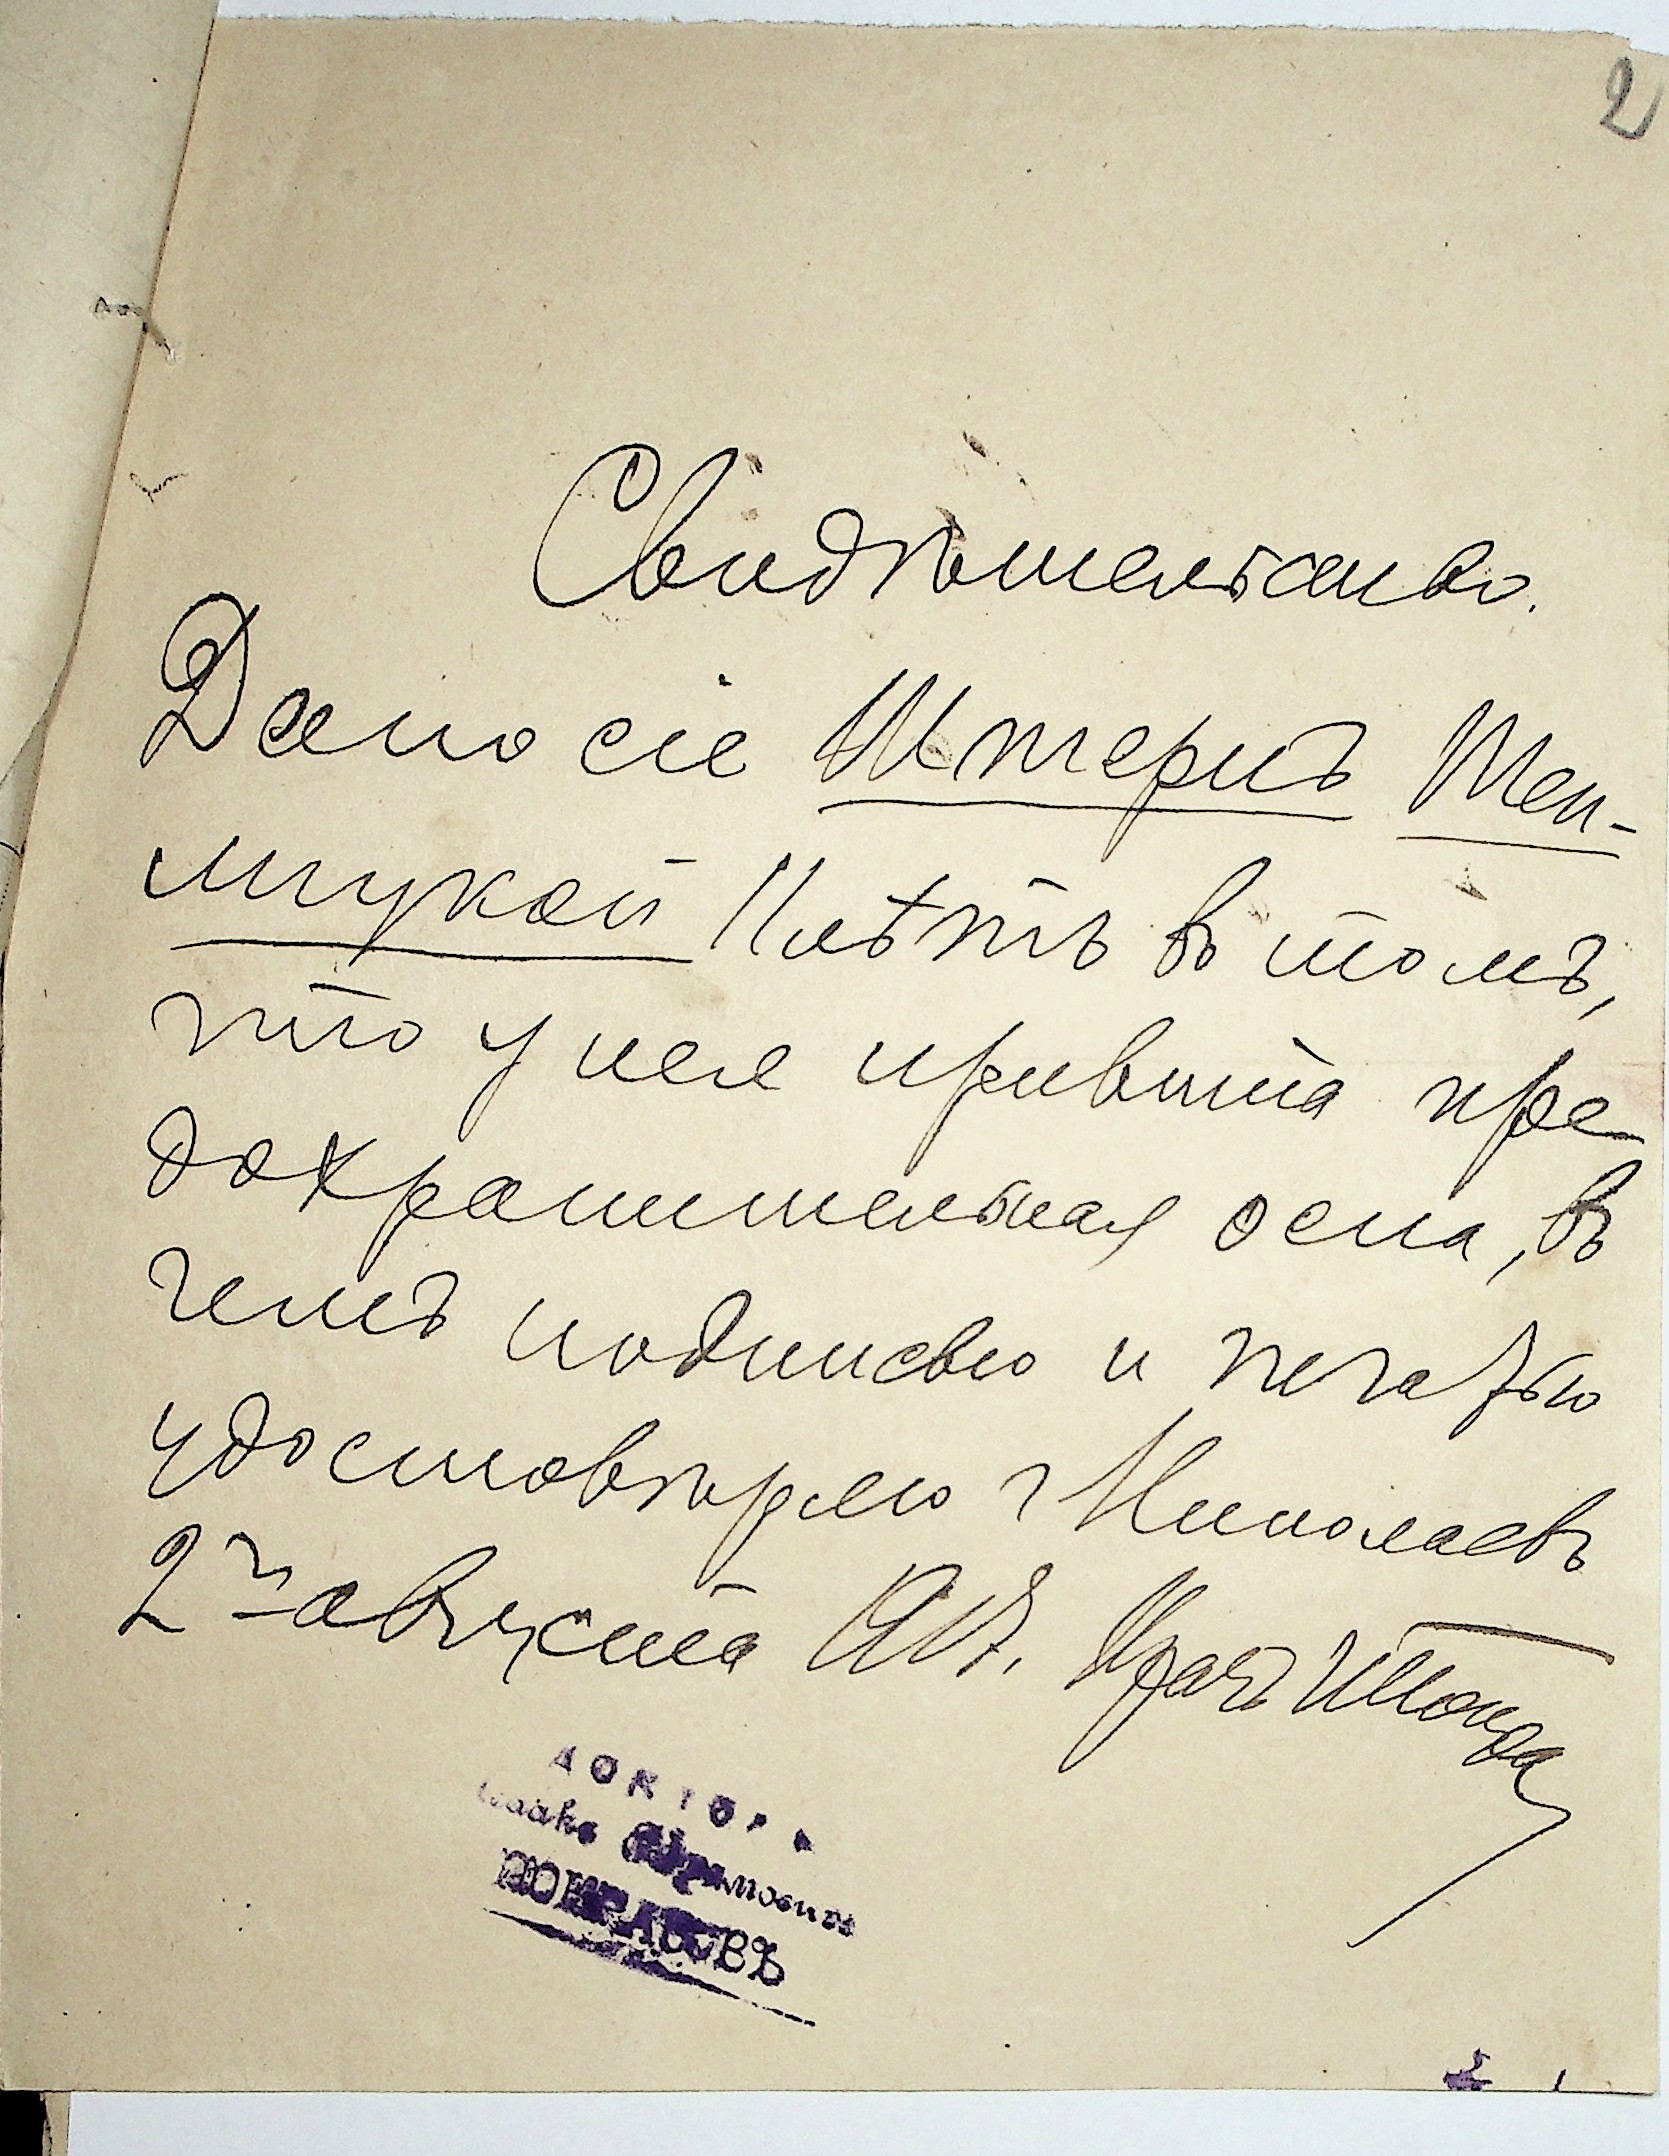 2
Свидѣтельство.
Дано сіе Штернъ Мен-
шукой 11 лѣтъ въ томъ,
что у нея привита пре-
дохранительная оспа, въ
чемъ подписью и печатью
удостовѣряю г Николаевъ
2го августа Врачъ
ДОКТОРЪ